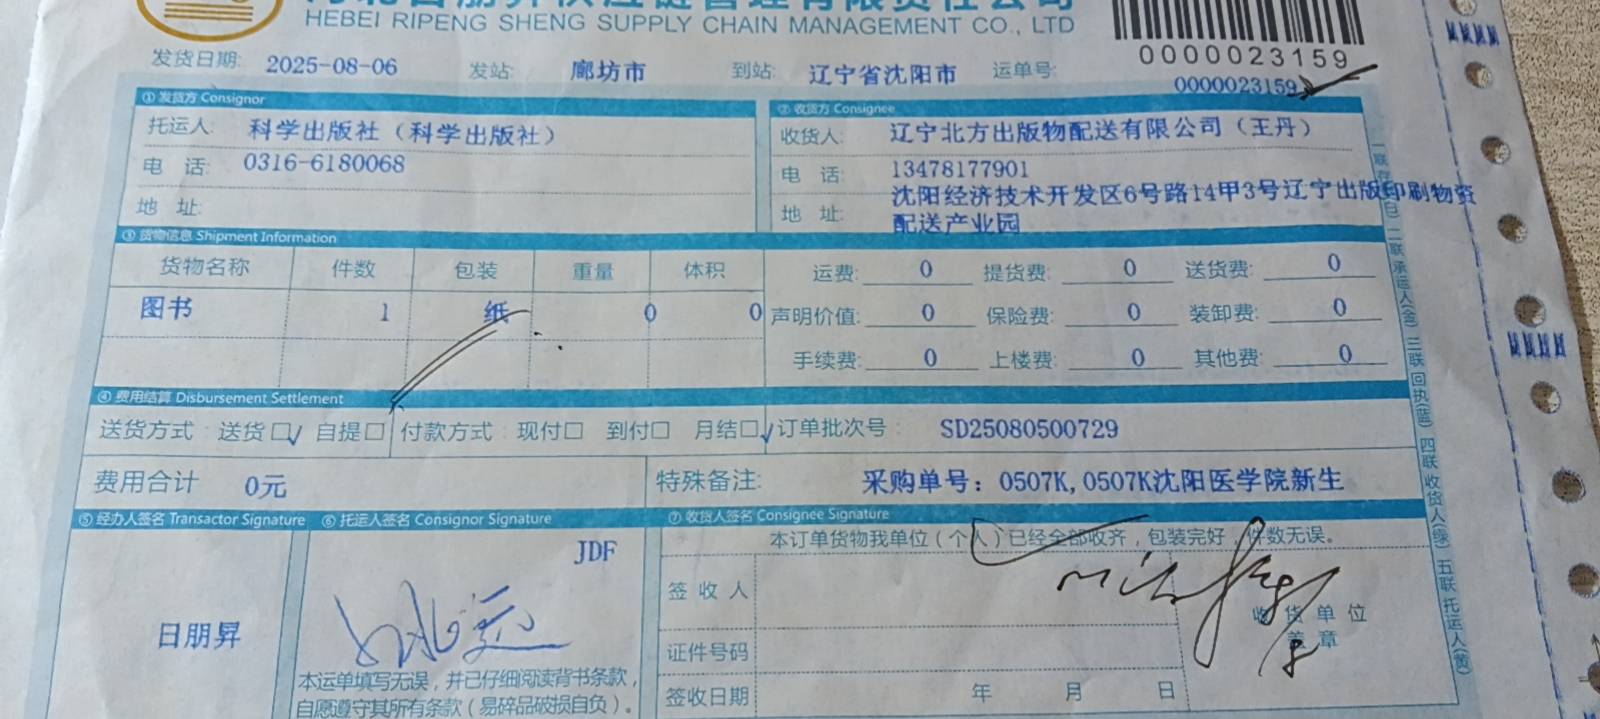 河北日朋昇供应链管理有限责任公司
HEBEI RIPENG SHENG SUPPLY CHAIN MANAGEMENT CO., LTD
0000023159
发货日期: 2025-08-06 发站: 廊坊市 到站: 辽宁省沈阳市 运单号: 0000023159
①发货方 Consignor ②收货方 Consignee
托运人: 科学出版社（科学出版社） 收货人: 辽宁北方出版物配送有限公司（王丹）
电 话: 0316-6180068 电 话: 13478177901
地 址: 地 址: 沈阳经济技术开发区6号路14甲3号辽宁出版印刷物资
配送产业园
③货物信息 Shipment Information
货物名称 件数 包装 重量 体积 运费: 0 提货费: 0 送货费: 0
图书 1 纸 0 0 声明价值: 0 保险费: 0 装卸费: 0
手续费: 0 上楼费: 0 其他费: 0
④费用结算 Disbursement Settlement
送货方式 送货☐√ 自提☐ 付款方式: 现付☐ 到付☐ 月结☐√ 订单批次号: SD25080500729
费用合计 0元 特殊备注: 采购单号: 0507K,0507K沈阳医学院新生
⑤经办人签名 Transactor Signature ⑥托运人签名 Consignor Signature ⑦收货人签名 Consignee Signature
本订单货物我单位（个人）已经全部收齐，包装完好，件数无误。
JDF
签 收 人
收 货 单 位
盖 章
日朋昇
证件号码
本运单填写无误，并已仔细阅读背书条款，
自愿遵守其所有条款（易碎品破损自负）。
签收日期 年 月 日
二联 承运人(金) 三联 回执(蓝) 四联 收货人(绿) 五联 托运人(黄)